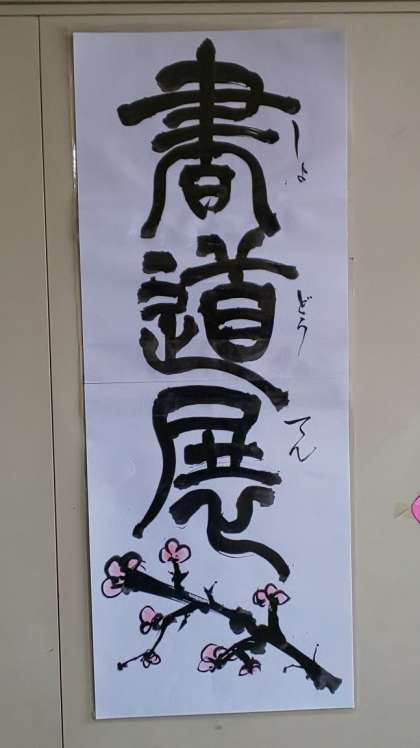 書道展
しょ
どう
てん